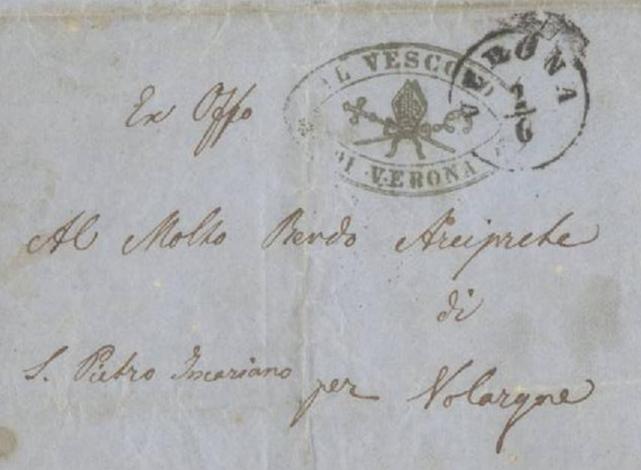 Ex Offo
IL VESCO
DI VERONA
VERONA
2/6
Al Molto Revdo Arciprete
di
S. Pietro Incariano per Volargne